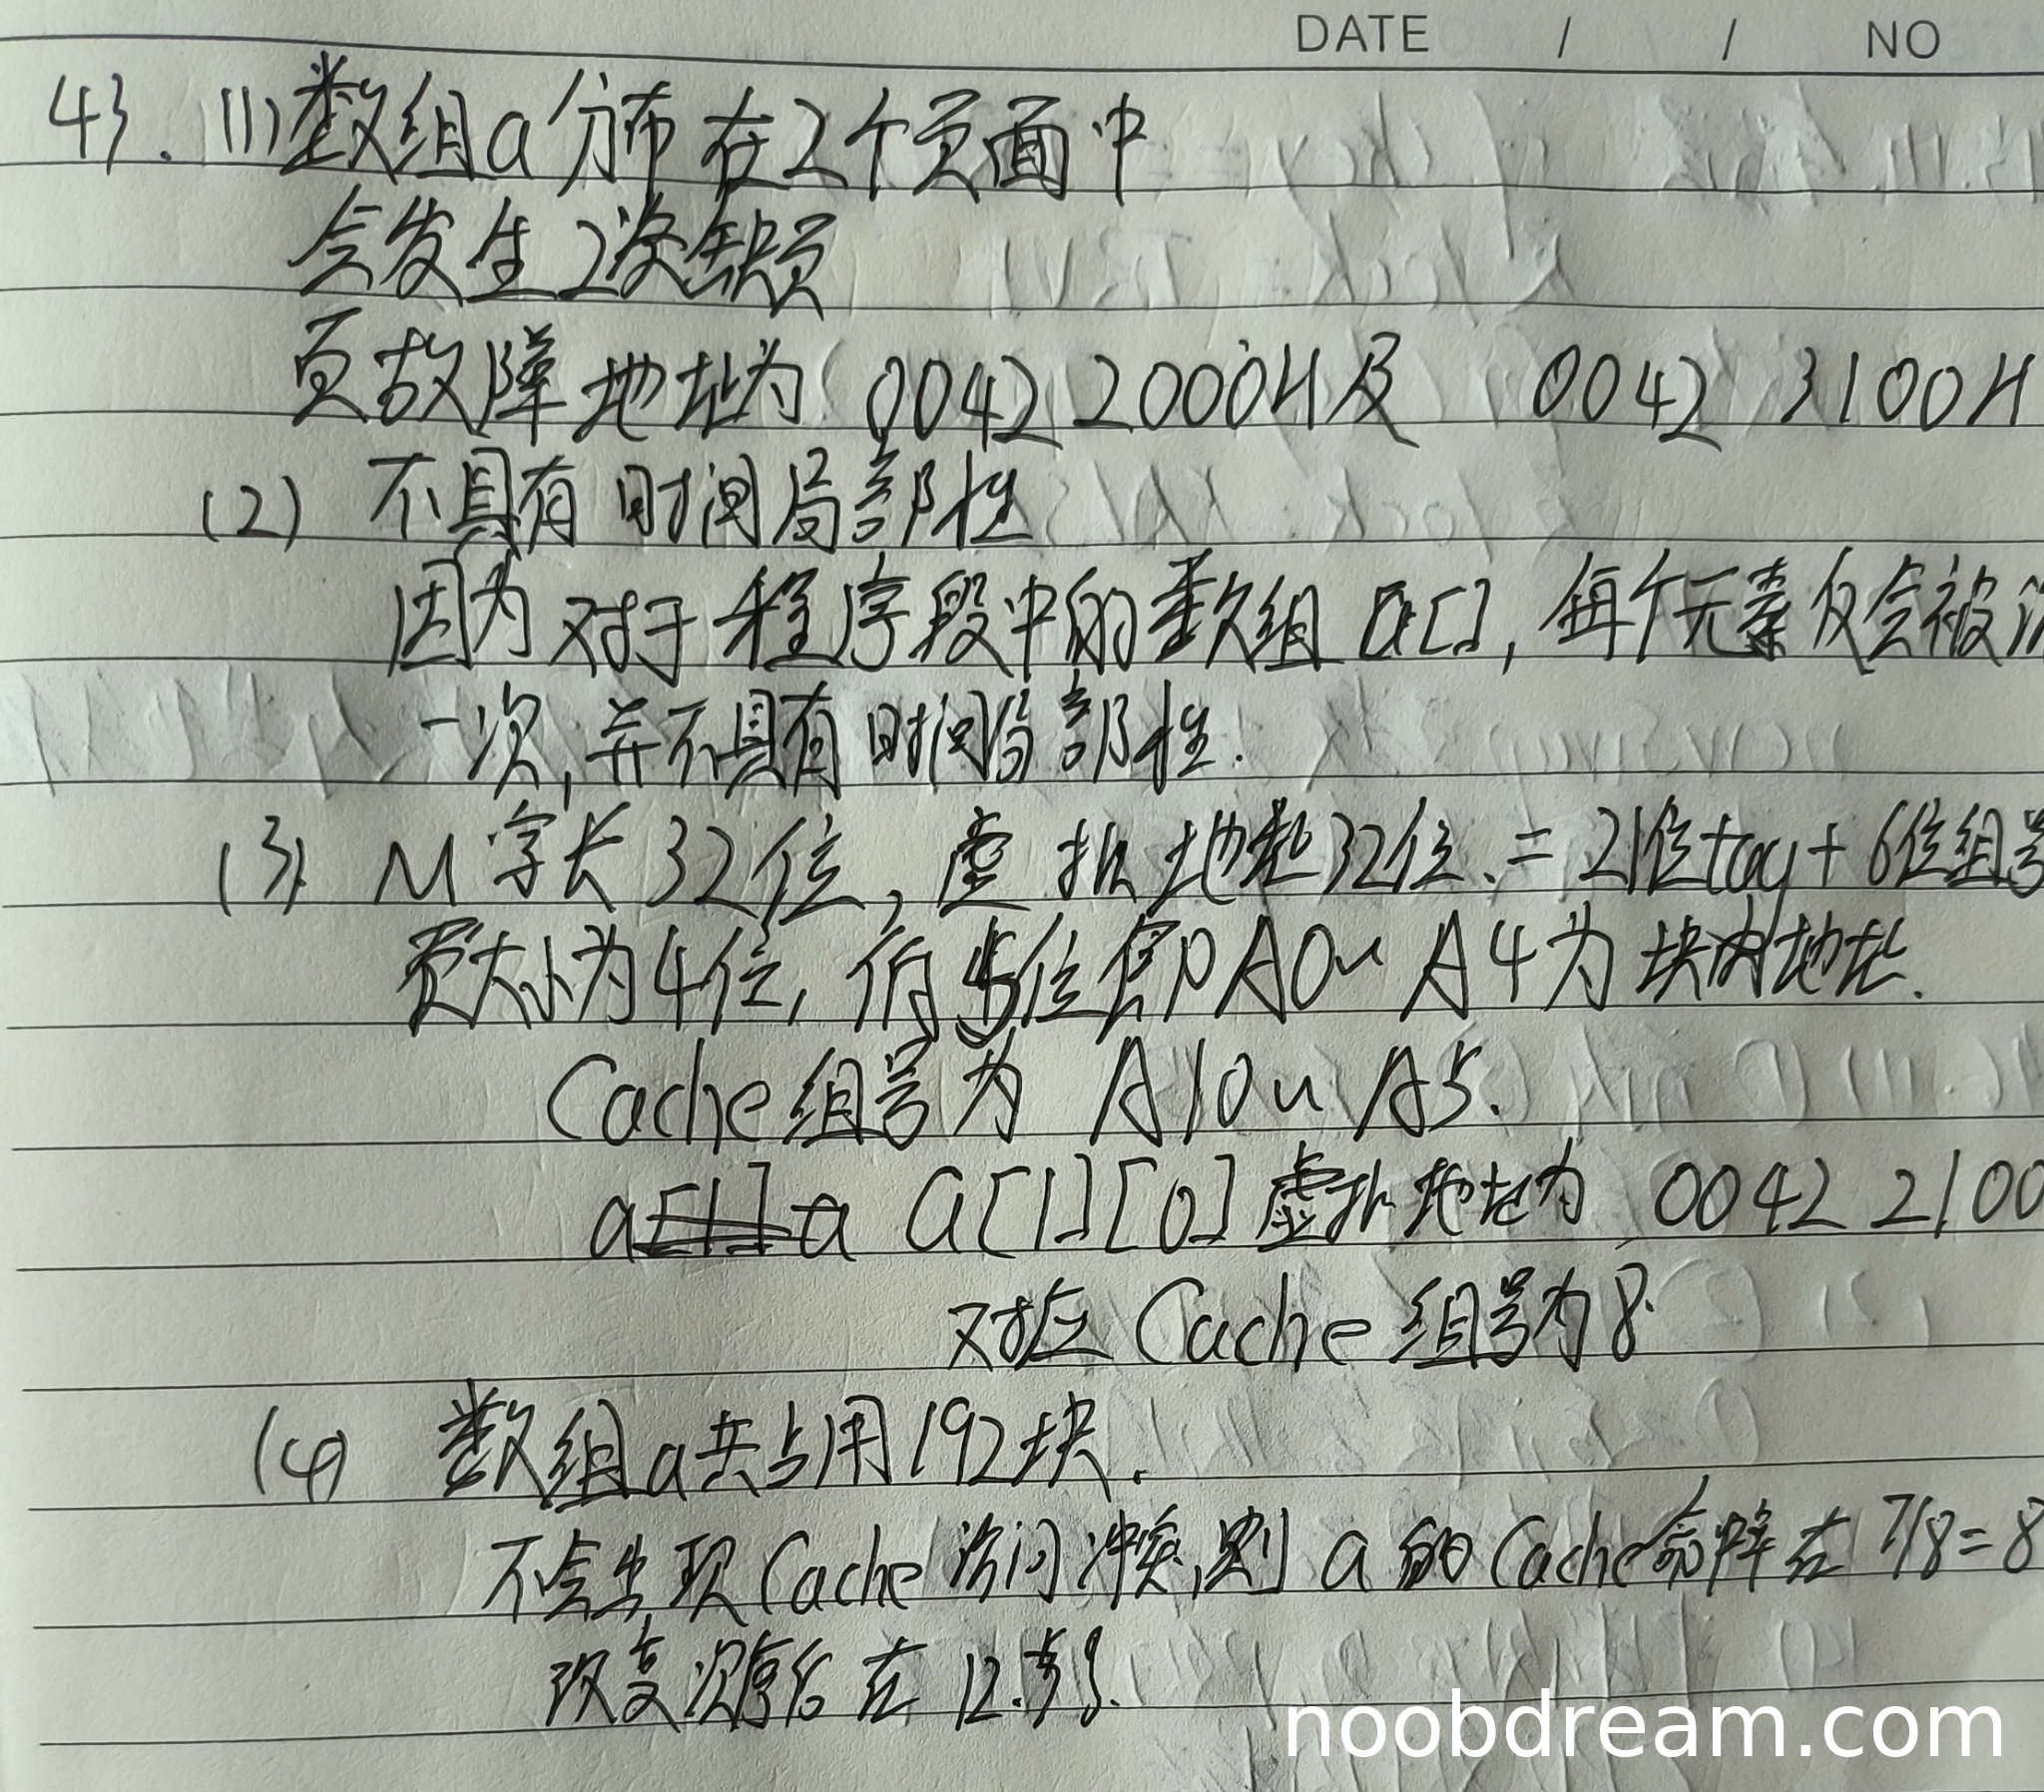 DATE / / NO
43. (1) 数组a分布在2个页面中
会发生2次缺页
页故障地址为 0042 2000H及 0042 3100H
(2) 不具有时间局部性
因为对于程序段中的数组a[],每个元素仅会被
一次,并不具有时间局部性.
(3) M字长32位,虚拟地址32位.=21位tag+6位组号
页大小为4位,低5位即A0~A4为块内地址.
Cache组号为 A10~A5.
a[1][0]虚拟地址为 0042 2100
对应Cache组号为8.
(4) 数组a共占用192块.
不会出现Cache访问冲突,则a的Cache命中率在7/8=8
改变次序后在12.5%.
noobdream.com